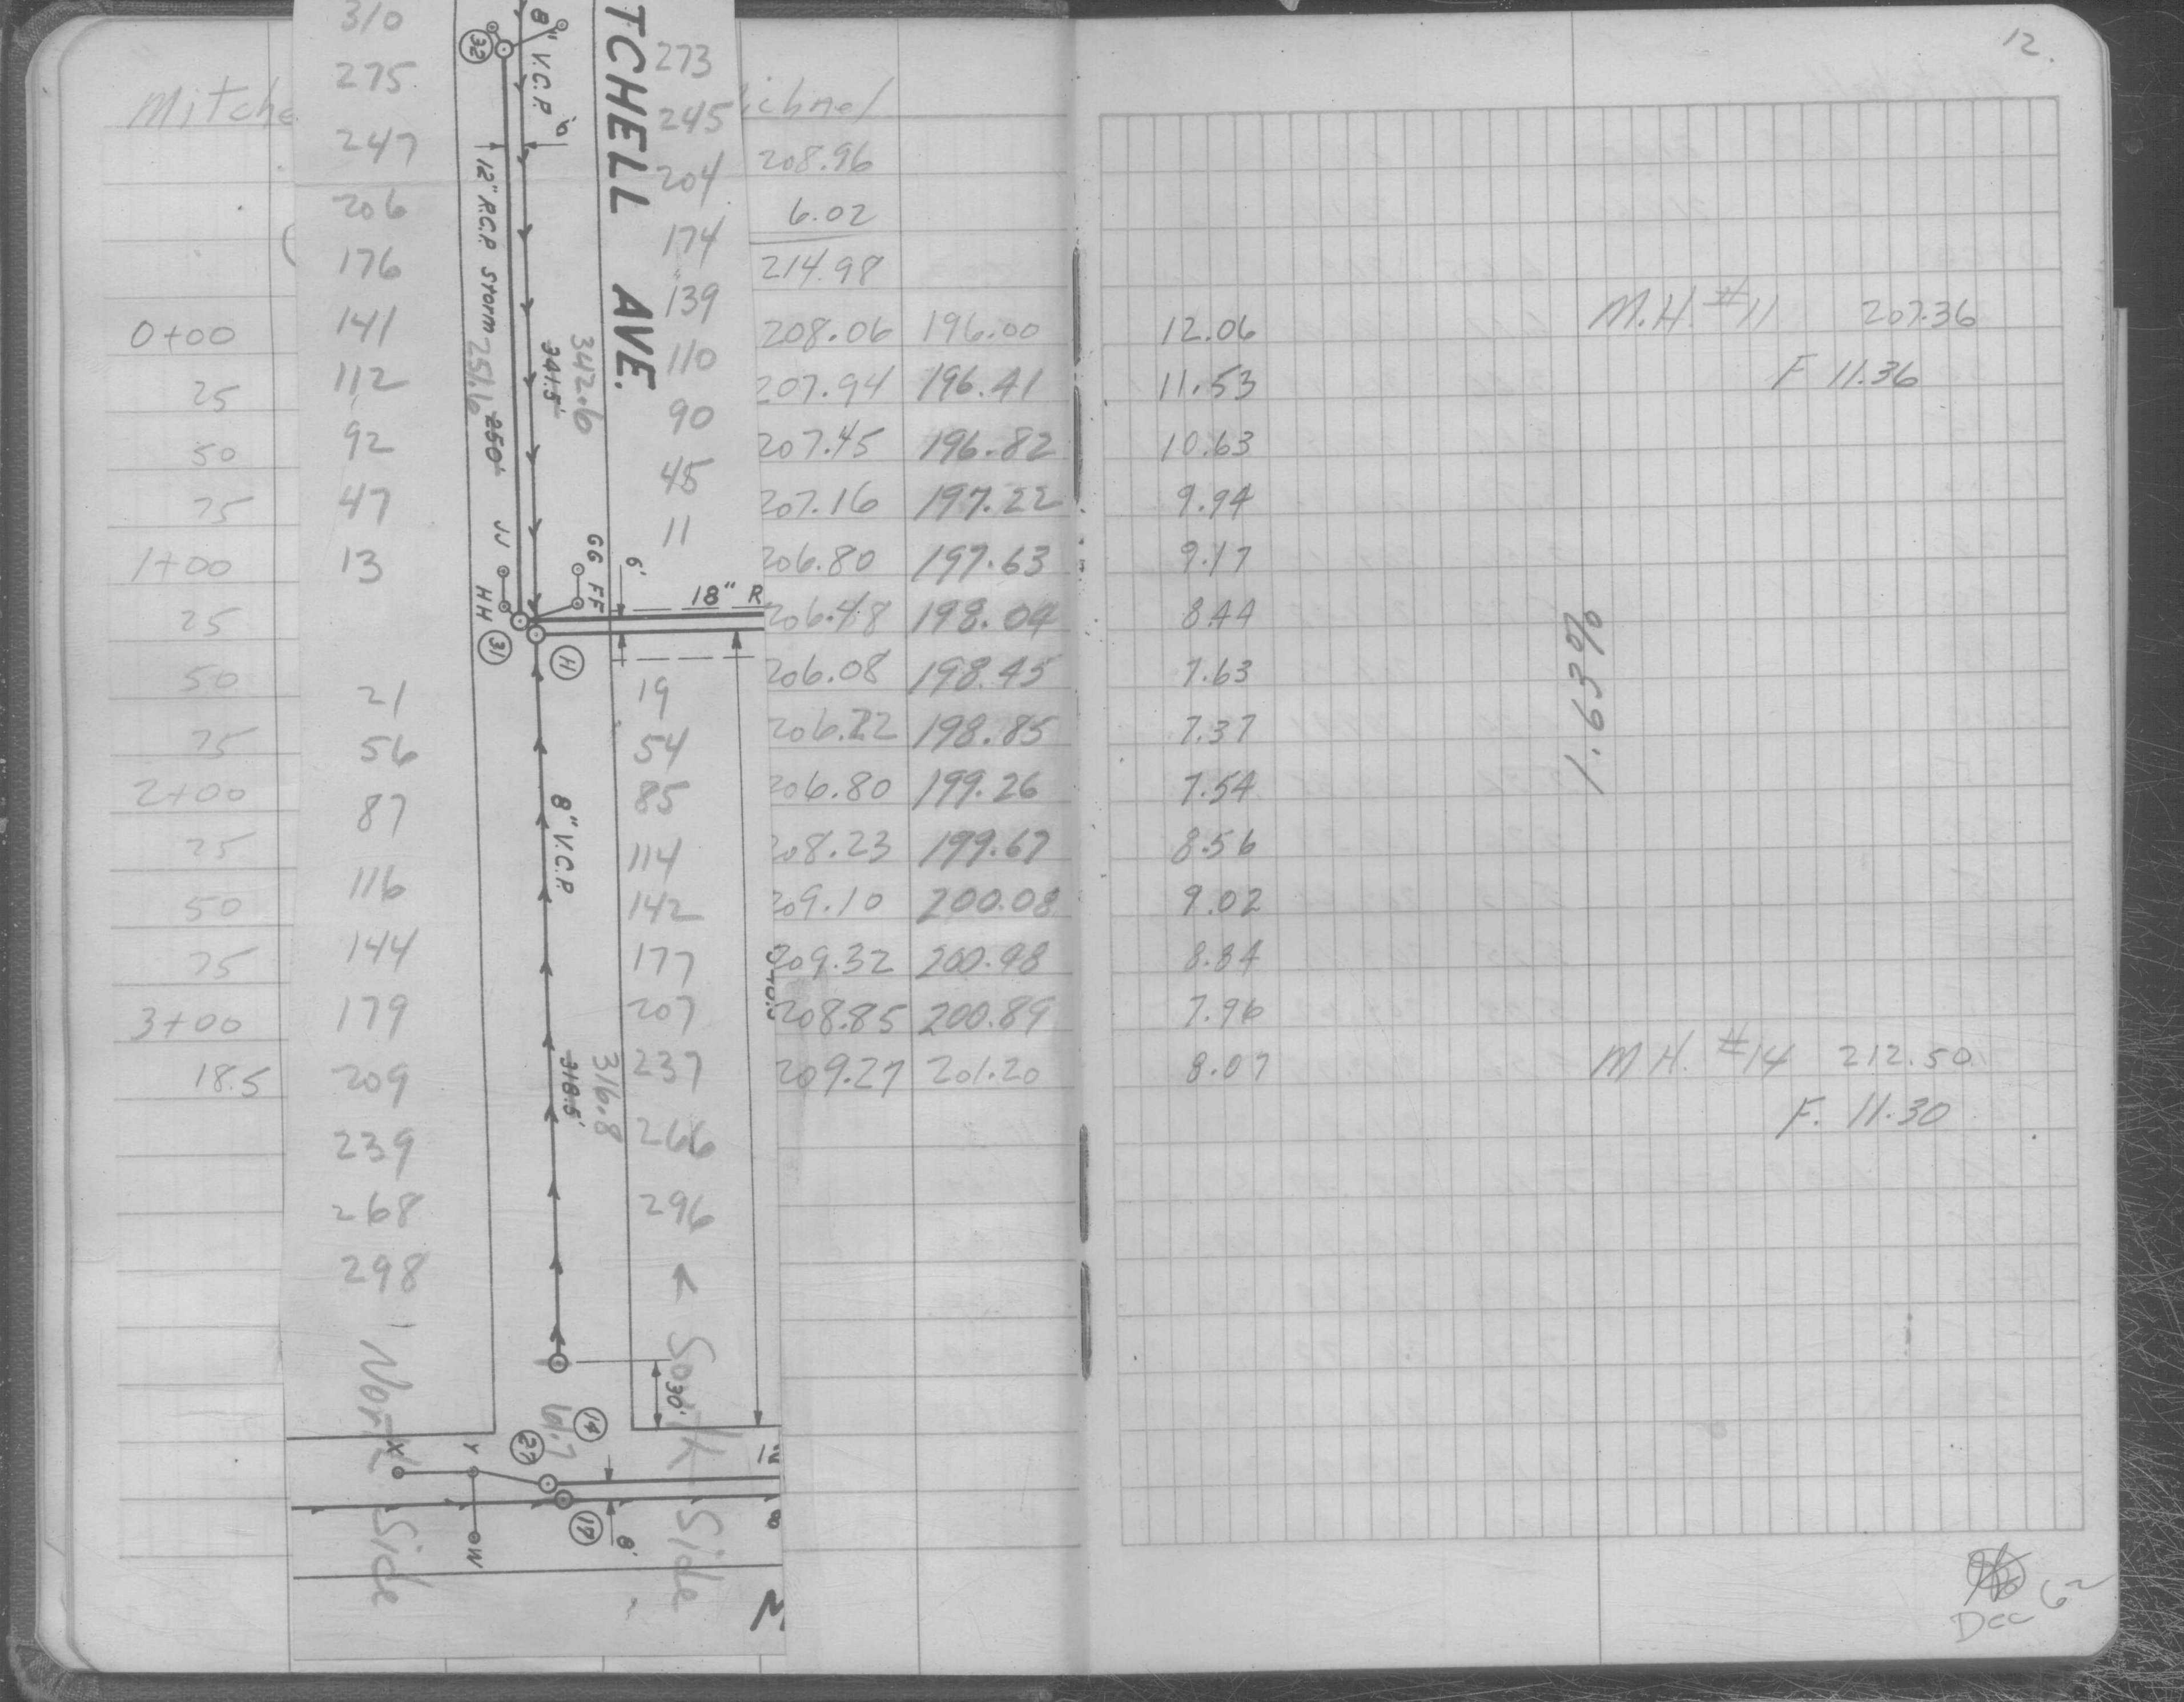 12.
Mitche
ichnel
208.96
6.02
214.98
0+00 208.06 196.00 12.06 M.H. #11 207.36
25 207.94 196.41 11.53 F 11.36
50 207.45 196.82 10.63
75 207.16 197.22 9.94
1+00 206.80 197.63 9.17
25 206.48 198.04 8.44
50 206.08 198.45 7.63
75 206.22 198.85 7.37
2+00 206.80 199.26 7.54
25 208.23 199.67 8.56
50 209.10 200.08 9.02
75 209.32 200.48 8.84
3+00 208.85 200.89 7.96
18.5 209.27 201.20 8.07 M.H. #14 212.50
F. 11.30
1.63%
310
275
247
206
176
141
112
92
47
13
21
56
87
116
144
179
209
239
268
298
North Side
273
245
204
174
139
110
90
45
11
19
54
85
114
142
177
207
237
266
296
South Side
TCHELL AVE.
32
8" V.C.P.
6'
12" R.C.P. Storm
251.6
250'
342.6
341.5'
JJ
HH
31
GG
FF
6'
18" R
11
8" V.C.P.
316.8
318.5'
30'
14
27
19
X
Y
W
12
8
8'
M
Dec 62